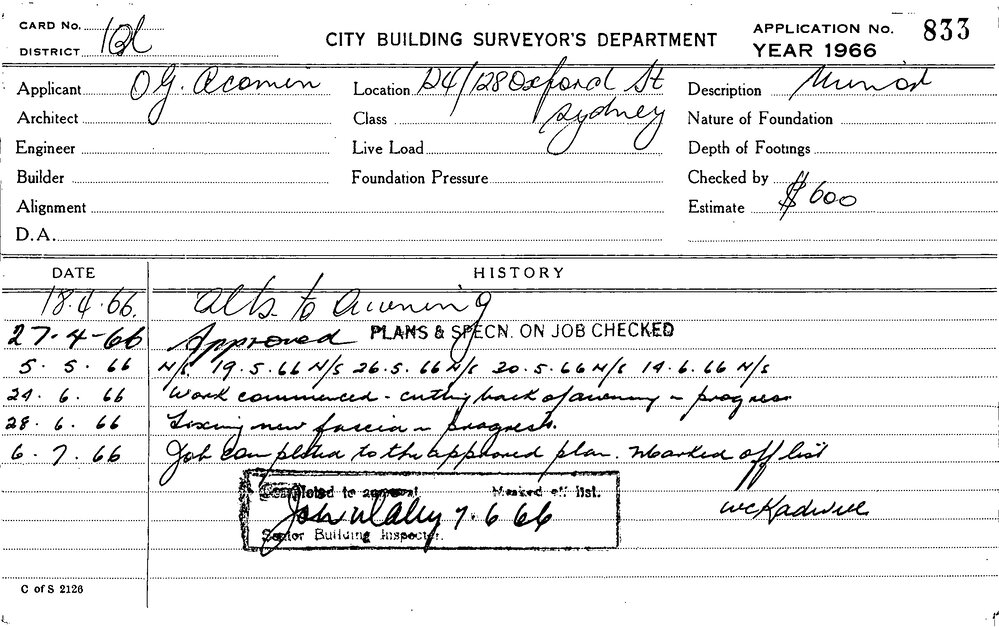 CARD No.
DISTRICT
CITY BUILDING SURVEYOR'S DEPARTMENT
APPLICATION No. 833
YEAR 1966
Applicant O G.
Location 124/128 Oxford St
Sydney
Description Minor
Architect
Class
Nature of Foundation
Engineer
Live Load
Depth of Footings
Builder
Foundation Pressure
Checked by
Alignment
Estimate $600
D.A.
DATE HISTORY
18.4.66. Alts to Awning
27-4-66 Approved PLANS & SPECN. ON JOB CHECKED
5. 5. 66 N/S 19.5.66 N/S 26.5.66 N/S 30.5.66 N/S 14.6.66 N/S
24. 6. 66 Work commenced - cutting back of awning in progress
28. 6. 66 Fixing new fascia in progress.
6. 7. 66 Job completed to the approved plan. Marked off list
Completed to approval Marked off list.
7.6 66
Senior Building Inspector.
C of S 2126